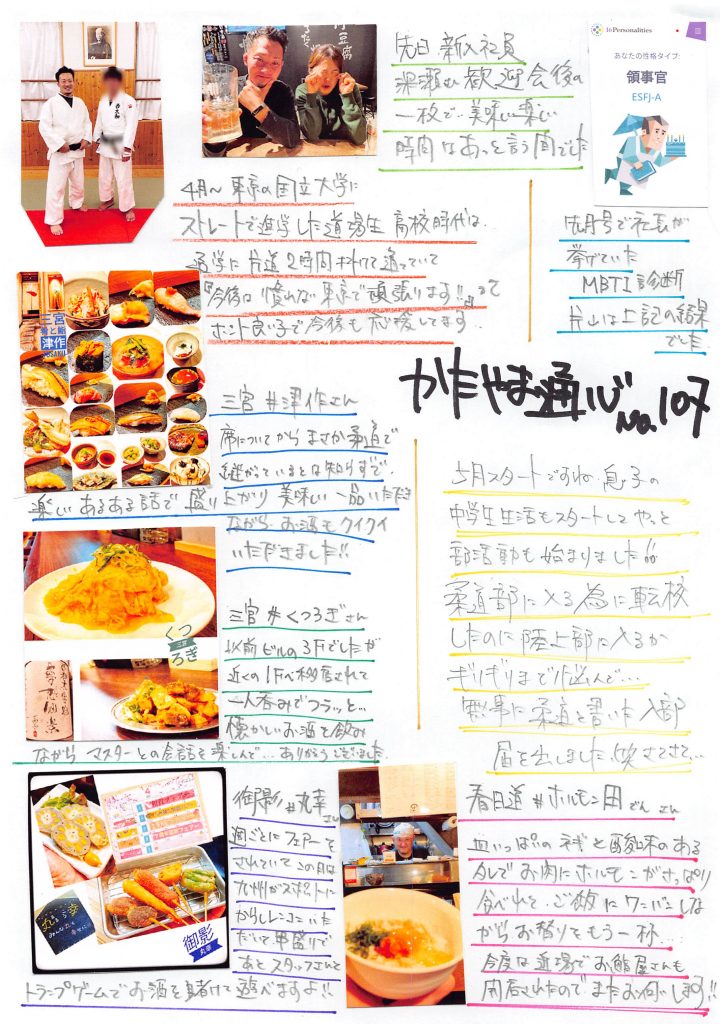 先日 新入社員
歓迎会後の
一枚で 美味しい楽しい
時間はあっと言う間でした
16Personalities
あなたの性格タイプ:
領事官
ESFJ-A
4月〜東京の国立大学に
ストレートで進学した道場生 高校時代は、
通学に片道2時間かけて通っていて
「今後は慣れない東京で頑張ります!!」って
ホント良い子で今後も応援してます。
先月号で社長が
挙げていた
MBTI診断
片山は上記の結果
でした
かたやま通心 No.107
三宮
津作
三宮 #津作さん
席についてから まさか柔道で
継がっているとは知らずで、
楽しい あるある話で 盛り上がり 美味しい一品いただき
ながら お酒もクイクイ
いただきました!!
5月スタートですね 息子の
中学生生活もスタートして やっと
部活動も始まりました
柔道部に入る為に転校
したのに 陸上部に入るか
ギリギリまで悩んで…
無事に柔道と書いた入部
届を出しました、
くつろぎ
三宮 #くつろぎさん
以前ビルの3Fでしたが
近くの1Fへ移店されて
一人呑みでフラッと…
懐かしいお酒を飲み
ながら マスターとの会話を楽しんで… ありがとうございました
御影 #丸幸さん
週ごとにフェアーを
されていて この月は
九州がスポットに
からしレンコンいた
だいて 串盛りで
あと スタッフさんと
トランプゲームでお酒を賭けて 遊べますよ!!
御影
丸幸
春日道 #ホルモン田でん さん
皿いっぱいの ネギと酸味のある
タレで お肉にホルモンがさっぱり
食べれて、ご飯に ワンバンしな
がら お替りでもう一杯…
今度は 近場で お鮨屋さんも
開店されたので またお伺いします!!